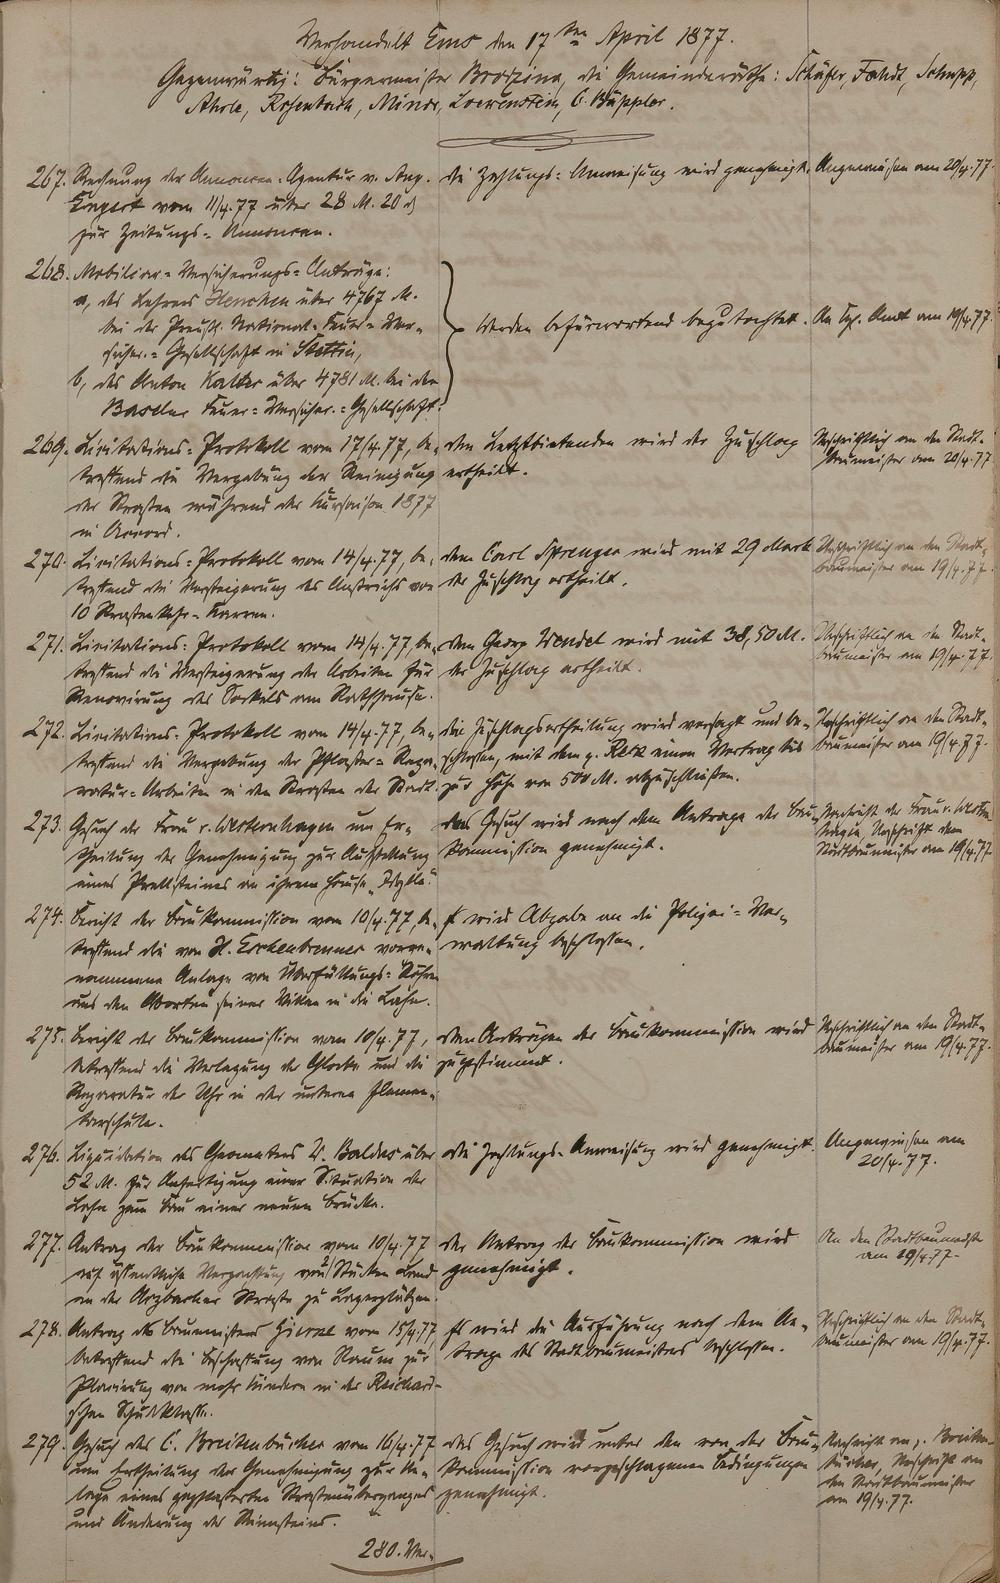 Verhandelt Ems den 17ten April 1877.
Gegenwärtig: Bürgermeister Brozina, die Gemeinderäthe: Schäfer, Schupp,
Ahrle, Rosenbach, Minor, Loewenstein, C. Büppler.
267. Rechnung der Annoncen-Agentur v. Aug.
vom 11/4.77 über 28 M. 20 ₰
für Zeitungs-Annoncen.
die Zahlungs-Anweisung wird genehmigt.
Angewiesen am 20/4.77.
268. Mobiliar-Versicherungs-Anträge:
a, des Lehrers Henchen über 4767 M.
bei der Preuß. National-Feuer-Ver-
sicher.-Gesellschaft in Stettin,
b, des Anton Kalter über 4781 M. bei der
Basler Feuer-Versicher.-Gesellschaft.
Werden befürwortend begutachtet.
An Kgl. Amt am 19/4.77.
269. Licitations-Protokoll vom 17/4.77, be-
treffend die Vergebung der Reinigung
der Straßen während der Kursaison 1877
in Accord.
den Letztbietenden wird der Zuschlag
ertheilt.
Urschriftlich an den Stadt-
baumeister am 20/4.77
270. Licitations-Protokoll vom 14/4.77, be-
treffend die Versteigerung des Anstrichs von
10 Straßenkehr-Karren.
dem Carl Sprenger wird mit 29 Mark
der Zuschlag ertheilt.
Urschriftlich an den Stadt-
baumeister am 19/4.77.
271. Licitations-Protokoll vom 14/4.77, be-
treffend die Versteigerung der Arbeiten zur
Renovirung des Sockels am Rathhause.
dem Georg Wendel wird mit 38,50 M.
der Zuschlag ertheilt.
Urschriftlich an den Stadt-
baumeister am 19/4.77.
272. Licitations-Protokoll vom 14/4.77, be-
treffend die Vergebung der Pflaster-Repa-
ratur-Arbeiten in den Straßen der Stadt.
die Zuschlagsertheilung wird versagt und be-
schlossen, mit dem p. Retz einen Vertrag bis
zur Höhe von 500 M. abzuschließen.
Urschriftlich an den Stadt-
baumeister am 19/4.77.
273. Gesuch der Frau v. Westernhagen um Er-
theilung der Genehmigung zur Aufstellung
eines Prellsteines an ihrem Hause „Idylle".
das Gesuch wird nach dem Antrage der Bau-
kommission genehmigt.
Nachricht der Frau v. Western-
hagen, Urschrift dem
Stadtbaumeister am 19/4.77.
274. Bericht der Baukommission vom 10/4.77, be-
treffend die von H. Eschenbrenner vorge-
nommene Anlage von Überfüllungs-Röhren
aus den Aborten seiner Villen in die Lahn.
Es wird Abgabe an die Polizei-Ver-
waltung beschlossen.
275. Bericht der Baukommission vom 10/4.77,
betreffend die Verlegung der Glocke und die
Reparatur der Uhr in der unteren Elemen-
tarschule.
den Anträgen der Baukommission wird
zugestimmt.
Urschriftlich an den Stadt-
baumeister am 19/4.77.
276. Liquidation des Geometers W. Balder über
52 M. für Anfertigung einer Situation der
Lahn zum Bau einer neuen Brücke.
die Zahlungs-Anweisung wird genehmigt.
Angewiesen am
20/4.77.
277. Antrag der Baukommission vom 10/4.77
auf öffentliche Verpachtung von Stücken Land
an der Arzbacher Straße zu Lagerplätzen.
der Antrag der Baukommission wird
genehmigt.
An den Stadtbaumeister
am 19/4.77.
278. Antrag des Baumeisters vom 15/4.77
betreffend die Beschaffung von Raum zur
Placirung von mehr Kindern in der Reichard-
schen Schulklasse.
Es wird die Ausführung nach dem An-
trage des Stadtbaumeisters beschlossen.
Urschriftlich an den Stadt-
baumeister am 19/4.77.
279. Gesuch des C. Breitenbücher vom 16/4.77
um Ertheilung der Genehmigung zur An-
lage eines gepflasterten Straßenüberganges
und Änderung der Rinnsteins.
das Gesuch wird unter den von der Bau-
kommission vorgeschlagenen Bedingungen
genehmigt.
Nachricht an p. Breiten-
bücher, Urschrift an
den Stadtbaumeister
am 19/4.77.
280. Ver-